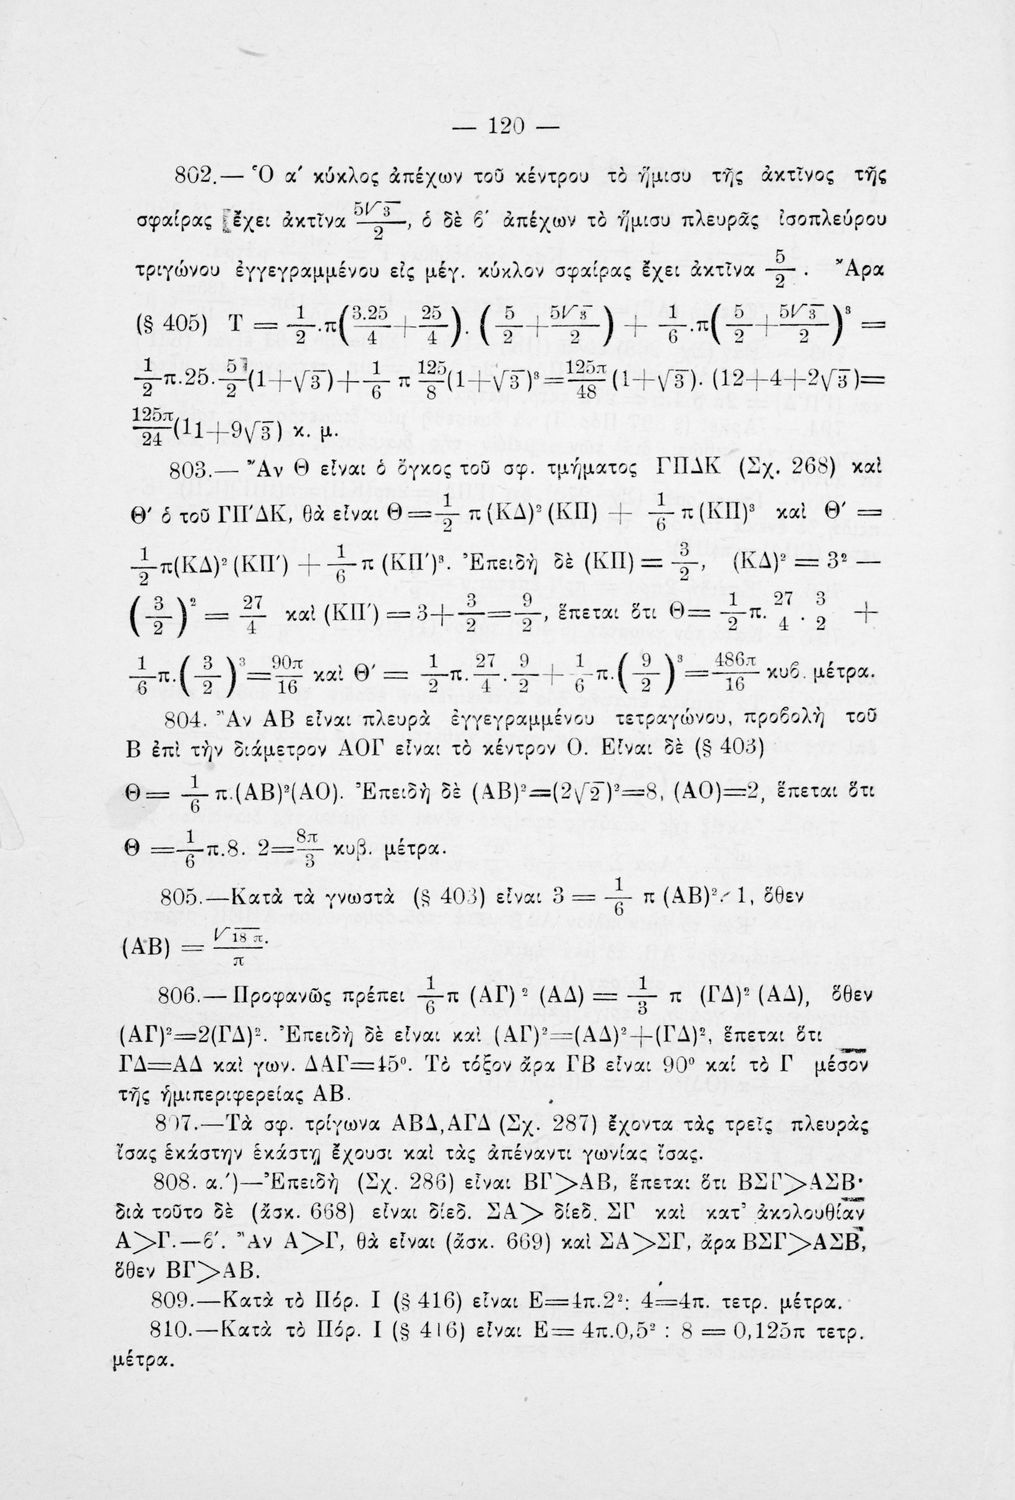 — 120 —
802.— Ὁ α′ κύκλος ἀπέχων τοῦ κέντρου τὸ ἥμισυ τῆς ἀκτῖνος τῆς
σφαίρας ἔχει ἀκτῖνα 5√3/2, ὁ δὲ β′ ἀπέχων τὸ ἥμισυ πλευρᾶς ἰσοπλεύρου
τριγώνου ἐγγεγραμμένου εἰς μέγ. κύκλον σφαίρας ἔχει ἀκτῖνα 5/2 . Ἄρα
(§ 405) Τ = 1/2.π(3.25/4 + 25/4). (5/2 + 5√3/2) + 1/6.π(5/2 + 5√3/2)³ =
1/2π.25.5/2(1+√3)+1/6 π 125/8(1+√3)³=125π/48(1+√3). (12+4+2√3)=
125π/24(11+9√3) κ. μ.
803.— Ἂν Θ εἶναι ὁ ὄγκος τοῦ σφ. τμήματος ΓΠΔΚ (Σχ. 268) καὶ
Θ′ ὁ τοῦ ΓΠ′ΔΚ, θὰ εἶναι Θ=1/2 π (ΚΔ)² (ΚΠ) + 1/6 π (ΚΠ)³ καὶ Θ′ =
1/2π(ΚΔ)² (ΚΠ′) + 1/6 π (ΚΠ′)³. Ἐπειδὴ δὲ (ΚΠ) = 3/2, (ΚΔ)² = 3² —
(3/2)² = 27/4 καὶ (ΚΠ′) = 3+3/2=9/2, ἕπεται ὅτι Θ= 1/2π. 27/4 . 3/2 +
1/6π.(3/2)³=90π/16 καὶ Θ′ = 1/2π.27/4.9/2+1/6π.(9/2)³=486π/16 κυβ. μέτρα.
804. Ἂν ΑΒ εἶναι πλευρὰ ἐγγεγραμμένου τετραγώνου, προβολὴ τοῦ
Β ἐπὶ τὴν διάμετρον ΑΟΓ εἶναι τὸ κέντρον Ο. Εἶναι δὲ (§ 403)
Θ= 1/6 π.(ΑΒ)²(ΑΟ). Ἐπειδὴ δὲ (ΑΒ)²=(2√2)²=8, (ΑΟ)=2, ἕπεται ὅτι
Θ =1/6π.8. 2=8π/3 κυβ. μέτρα.
805.—Κατὰ τὰ γνωστὰ (§ 403) εἶναι 3 = 1/6 π (ΑΒ)². 1, ὅθεν
(ΑΒ) = √18 π/π.
806.— Προφανῶς πρέπει 1/6π (ΑΓ) ² (ΑΔ) = 1/3 π (ΓΔ)² (ΑΔ), ὅθεν
(ΑΓ)²=2(ΓΔ)². Ἐπειδὴ δὲ εἶναι καὶ (ΑΓ)²=(ΑΔ)²+(ΓΔ)², ἕπεται ὅτι
ΓΔ=ΑΔ καὶ γων. ΔΑΓ=45°. Τὸ τόξον ἄρα ΓΒ εἶναι 90° καὶ τὸ Γ μέσον
τῆς ἡμιπεριφερείας ΑΒ.
807.—Τὰ σφ. τρίγωνα ΑΒΔ,ΑΓΔ (Σχ. 287) ἔχοντα τὰς τρεῖς πλευρὰς
ἴσας ἑκάστην ἑκάστῃ ἔχουσι καὶ τὰς ἀπέναντι γωνίας ἴσας.
808. α.′)—Ἐπειδὴ (Σχ. 286) εἶναι ΒΓ>ΑΒ, ἕπεται ὅτι ΒΣΓ>ΑΣΒ·
διὰ τοῦτο δὲ (ἄσκ. 668) εἶναι δίεδ. ΣΑ> δίεδ. ΣΓ καὶ κατ᾽ ἀκολουθίαν
Α>Γ.—β′. Ἂν Α>Γ, θὰ εἶναι (ἄσκ. 669) καὶ ΣΑ>ΣΓ, ἄρα ΒΣΓ>ΑΣΒ,
ὅθεν ΒΓ>ΑΒ.
809.—Κατὰ τὸ Πόρ. Ι (§ 416) εἶναι Ε=4π.2²: 4=4π. τετρ. μέτρα.
810.—Κατὰ τὸ Πόρ. Ι (§ 416) εἶναι Ε= 4π.0,5² : 8 = 0,125π τετρ.
μέτρα.